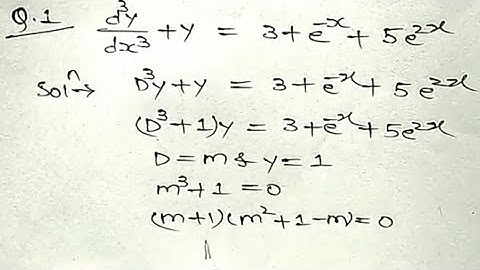 Q.1 d³y/dx³ + y = 3 + e^-x + 5e^2x
Solⁿ→ D³y + y = 3 + e^-x + 5e^2x
(D³+1)y = 3 + e^-x + 5e^2x
D = m & y = 1
m³ + 1 = 0
(m+1)(m²+1-m) = 0